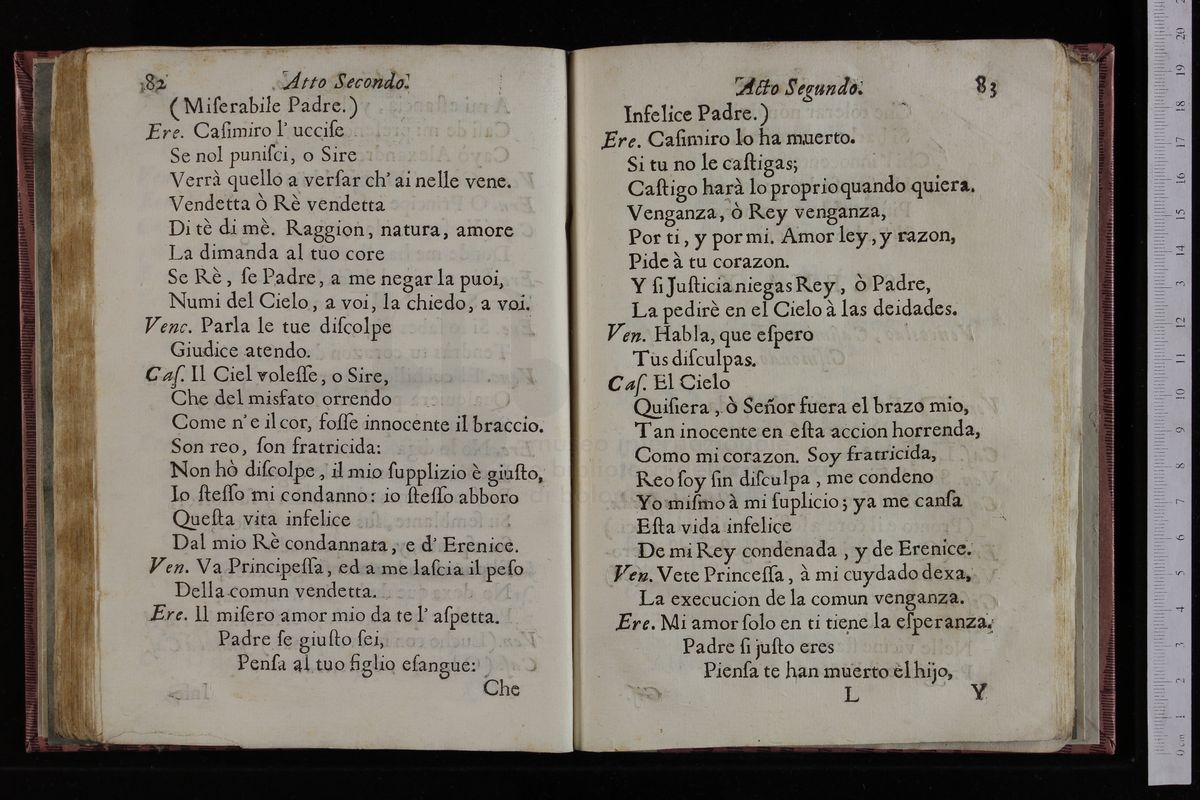 82 Atto Secondo.
(Miſerabile Padre.)
Ere. Caſimiro l' ucciſe
Se nol puniſci, o Sire
Verrà quello a verſar ch' ai nelle vene.
Vendetta ò Rè vendetta
Di tè di mè. Raggion, natura, amore
La dimanda al tuo core
Se Rè, ſe Padre, a me negar la puoi,
Numi del Cielo, a voi, la chiedo, a voi.
Venc. Parla le tue diſcolpe
Giudice atendo.
Caſ. Il Ciel voleſſe, o Sire,
Che del misfato orrendo
Come n' e il cor, foſſe innocente il braccio.
Son reo, ſon fratricida:
Non hò diſcolpe, il mio ſupplizio è giuſto,
Io ſteſſo mi condanno: io ſteſſo abboro
Queſta vita infelice
Dal mio Rè condannata, e d' Erenice.
Ven. Va Principeſſa, ed a me laſcia il peſo
Della comun vendetta.
Ere. Il miſero amor mio da te l' aſpetta.
Padre ſe giuſto ſei,
Penſa al tuo figlio eſangue:
Che
Acto Segundo. 83
Infelice Padre.)
Ere. Caſimiro lo ha muerto.
Si tu no le caſtigas;
Caſtigo harà lo proprio quando quiera.
Venganza, ò Rey venganza,
Por ti, y por mi. Amor ley, y razon,
Pide à tu corazon.
Y ſi Juſticia niegas Rey, ò Padre,
La pedirè en el Cielo à las deidades.
Ven. Habla, que eſpero
Tus diſculpas.
Caſ. El Cielo
Quiſiera, ò Señor fuera el brazo mio,
Tan inocente en eſta accion horrenda,
Como mi corazon. Soy fratricida,
Reo ſoy ſin diſculpa, me condeno
Yo miſmo à mi ſuplicio; ya me canſa
Eſta vida infelice
De mi Rey condenada, y de Erenice.
Ven. Vete Princeſſa, à mi cuydado dexa,
La execucion de la comun venganza.
Ere. Mi amor ſolo en ti tiene la eſperanza.
Padre ſi juſto eres
Pienſa te han muerto èl hijo,
L Y